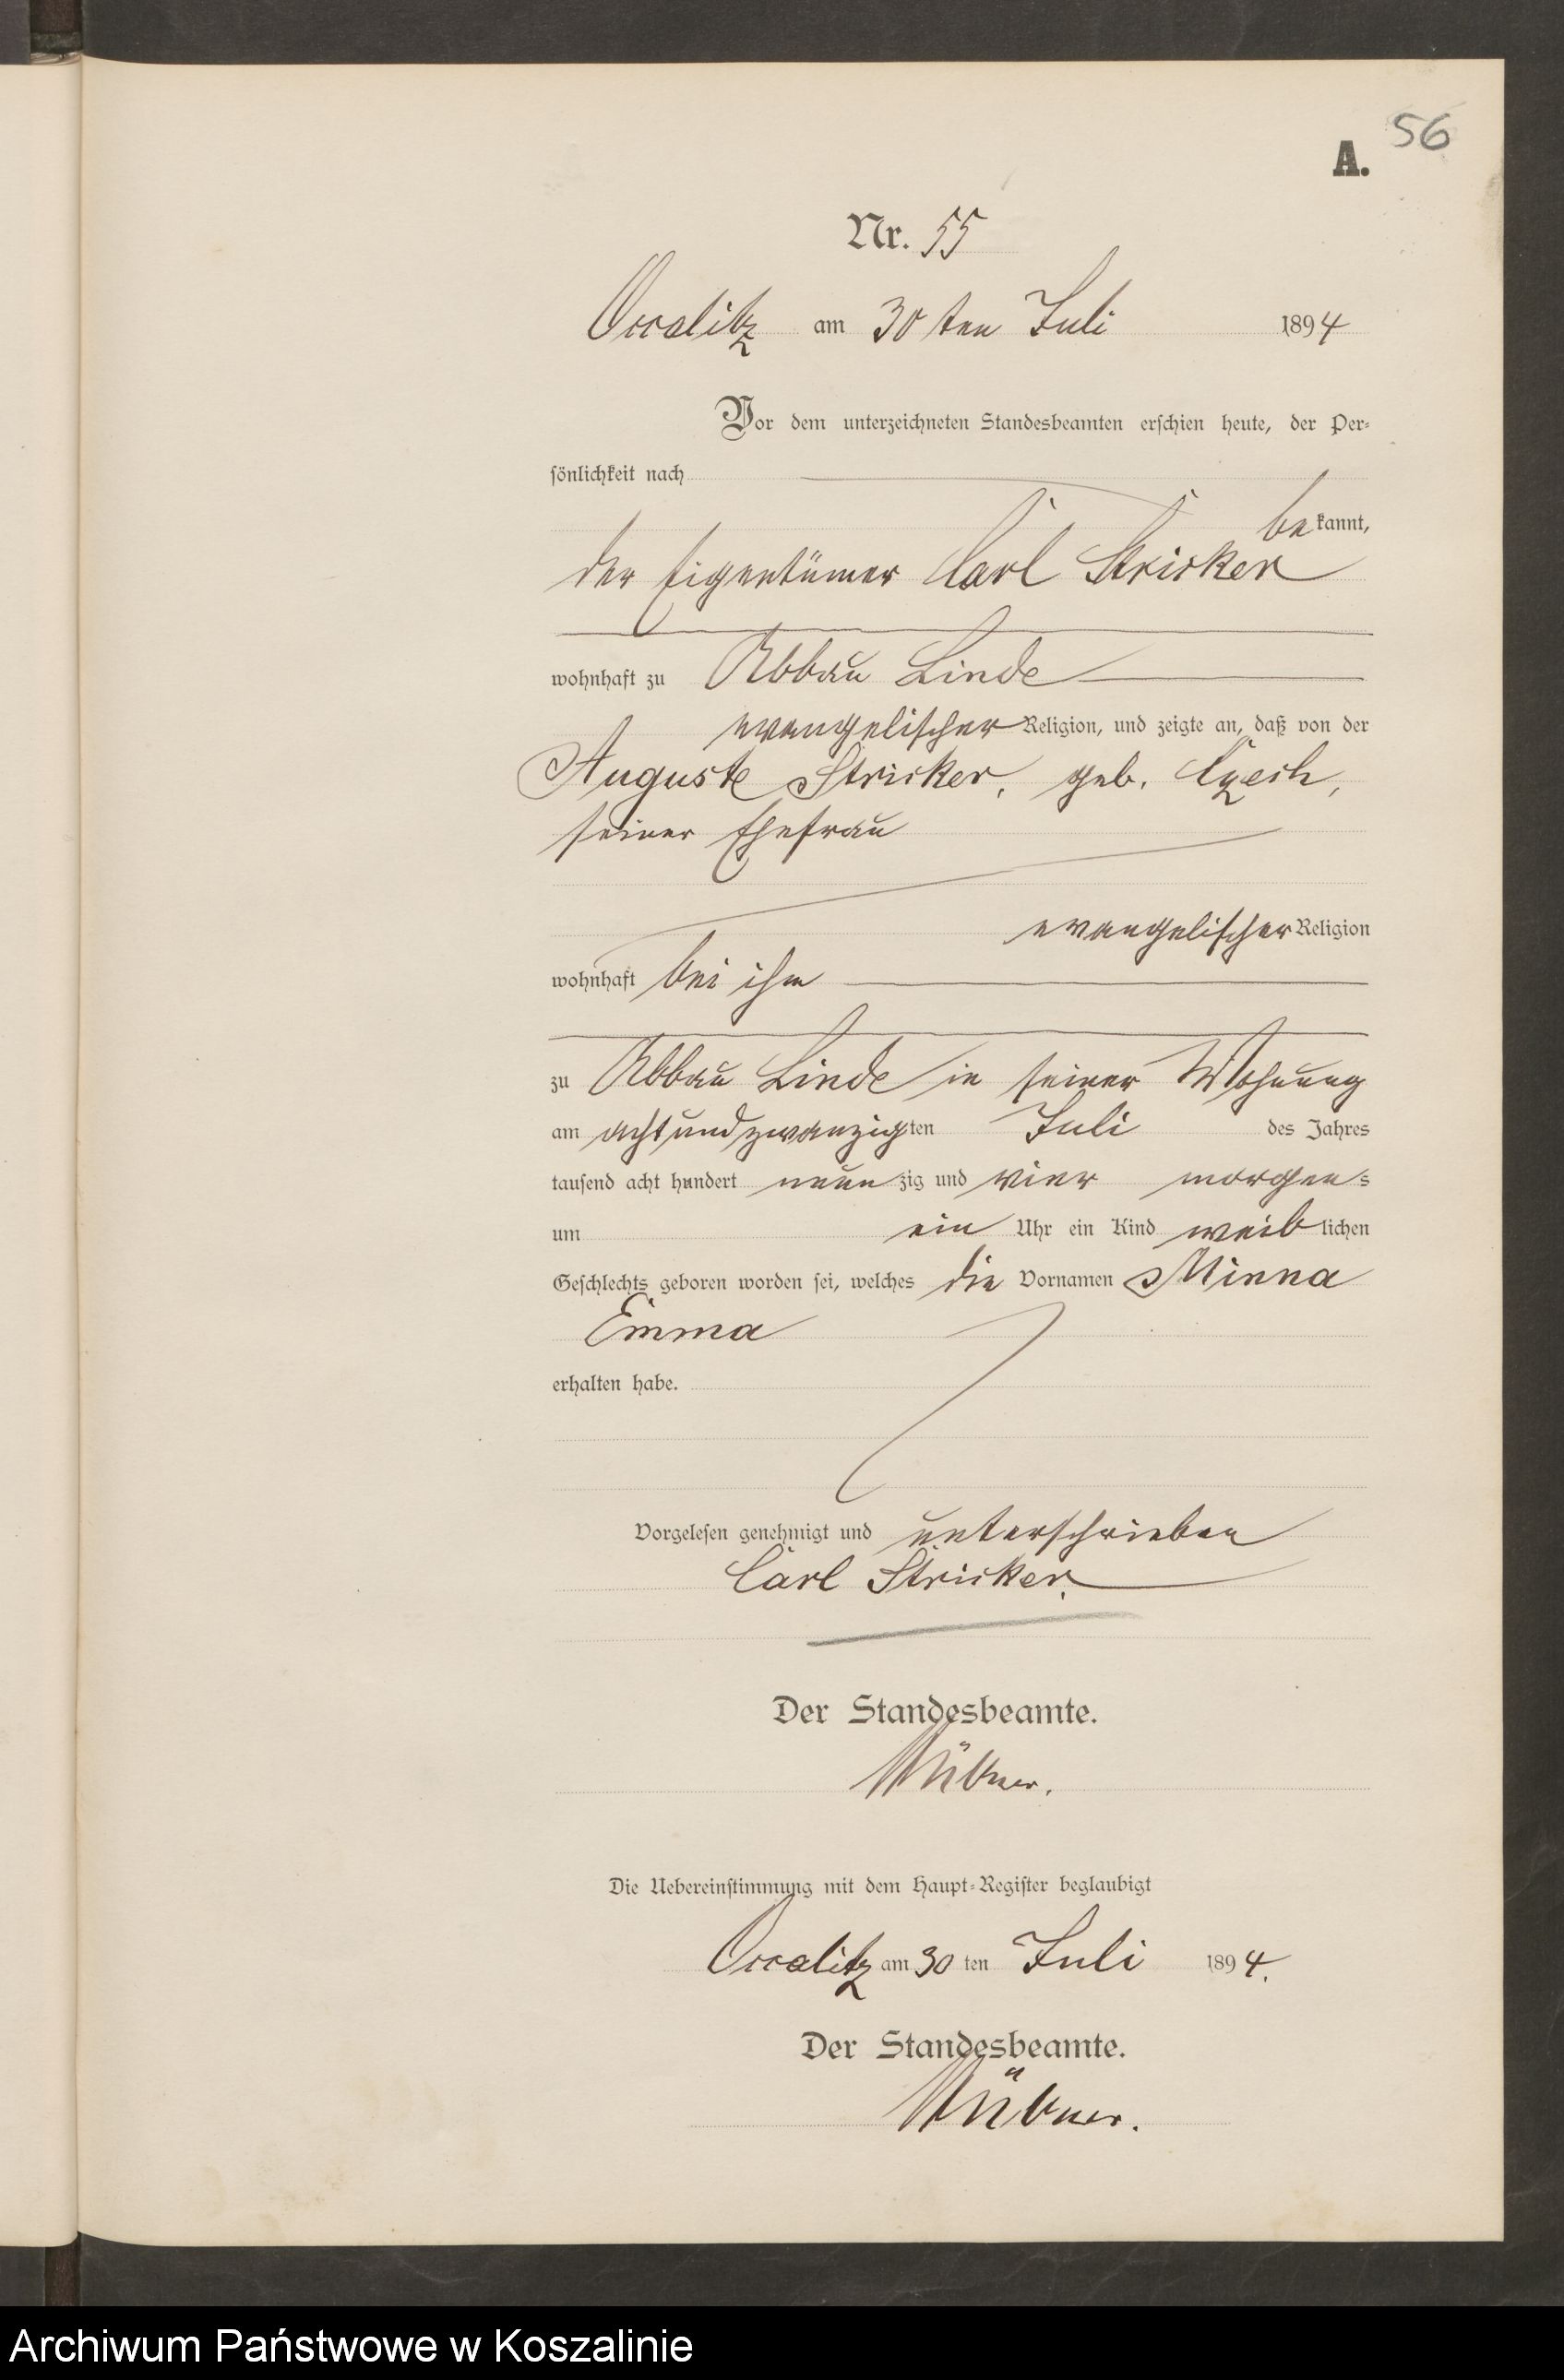 56
A.
Nr. 55
Occalitz am 30ten Juli 1894
Vor dem unterzeichneten Standesbeamten erschien heute, der Per-
sönlichkeit nach
bekannt,
der Eigentümer Carl Stricker
wohnhaft zu Abbau Linde
evangelischer Religion, und zeigte an, daß von der
Auguste Stricker, geb. Czech,
seiner Ehefrau
evangelischer Religion
wohnhaft bei ihm
zu Abbau Linde in seiner Wohnung
am achtundzwanzigten Juli des Jahres
tausend acht hundert neunzig und vier morgens
um ein Uhr ein Kind weiblichen
Geschlechts geboren worden sei, welches die Vornamen Minna
Emma
erhalten habe.
Vorgelesen genehmigt und unterschrieben
Carl Stricker.
Der Standesbeamte.
Die Uebereinstimmung mit dem Haupt-Register beglaubigt
Occalitz am 30ten Juli 1894.
Der Standesbeamte.
Archiwum Państwowe w Koszalinie